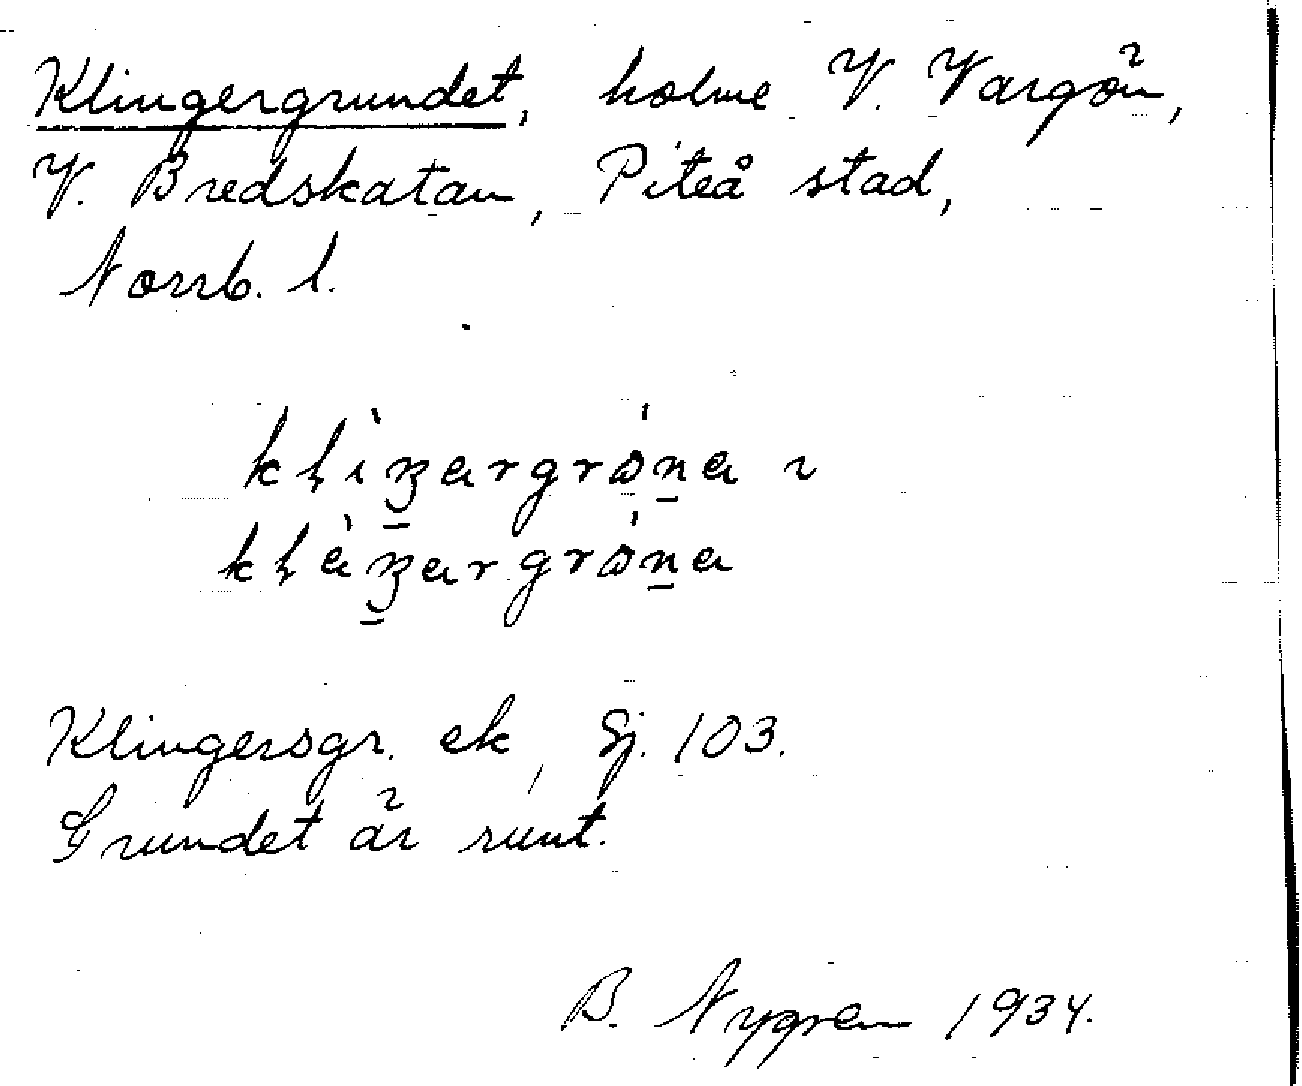 Klingergrundet, holme V. Vargön,
V. Bredskatan, Piteå stad,
Norrb. l.
kḷìŋargrǿṉa ꝛ
kḷàŋargrǿṉa
Klingersgr. ek, Sj. 103.
Grundet är runt.
B. Nygren 1934.